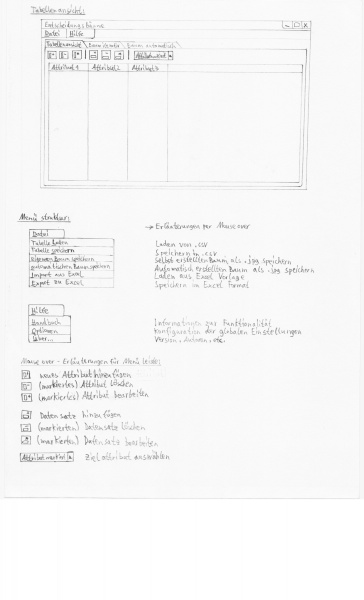 Tabellenansicht:
Entscheidungsbäume
Datei Hilfe
Tabellenansicht Baum automatisch
Attribut 1 Attribut 2 Attribut 3
Menüstruktur:
→ Erläuterungen per Mouse over
Datei
Tabelle laden Laden von .csv
Tabelle speichern Speichern in .csv
eigenen Baum speichern Selbst erstellten Baum als .jpg speichern
automatischen Baum speichern Automatisch erstellten Baum als .jpg speichern
Import aus Excel Laden aus Excel Vorlage
Export zu Excel Speichern im Excel Format
Hilfe
Handbuch Informationen zur Funktionalität
Optionen Konfiguration der globalen Einstellungen
Über... Version, Autoren, etc.
Mouse over - Erläuterungen für Menüleiste:
neues Attribut hinzufügen
(markiertes) Attribut löschen
(markiertes) Attribut bearbeiten
Datensatz hinzufügen
(markierten) Datensatz löschen
(markierten) Datensatz bearbeiten
Zielattribut auswählen